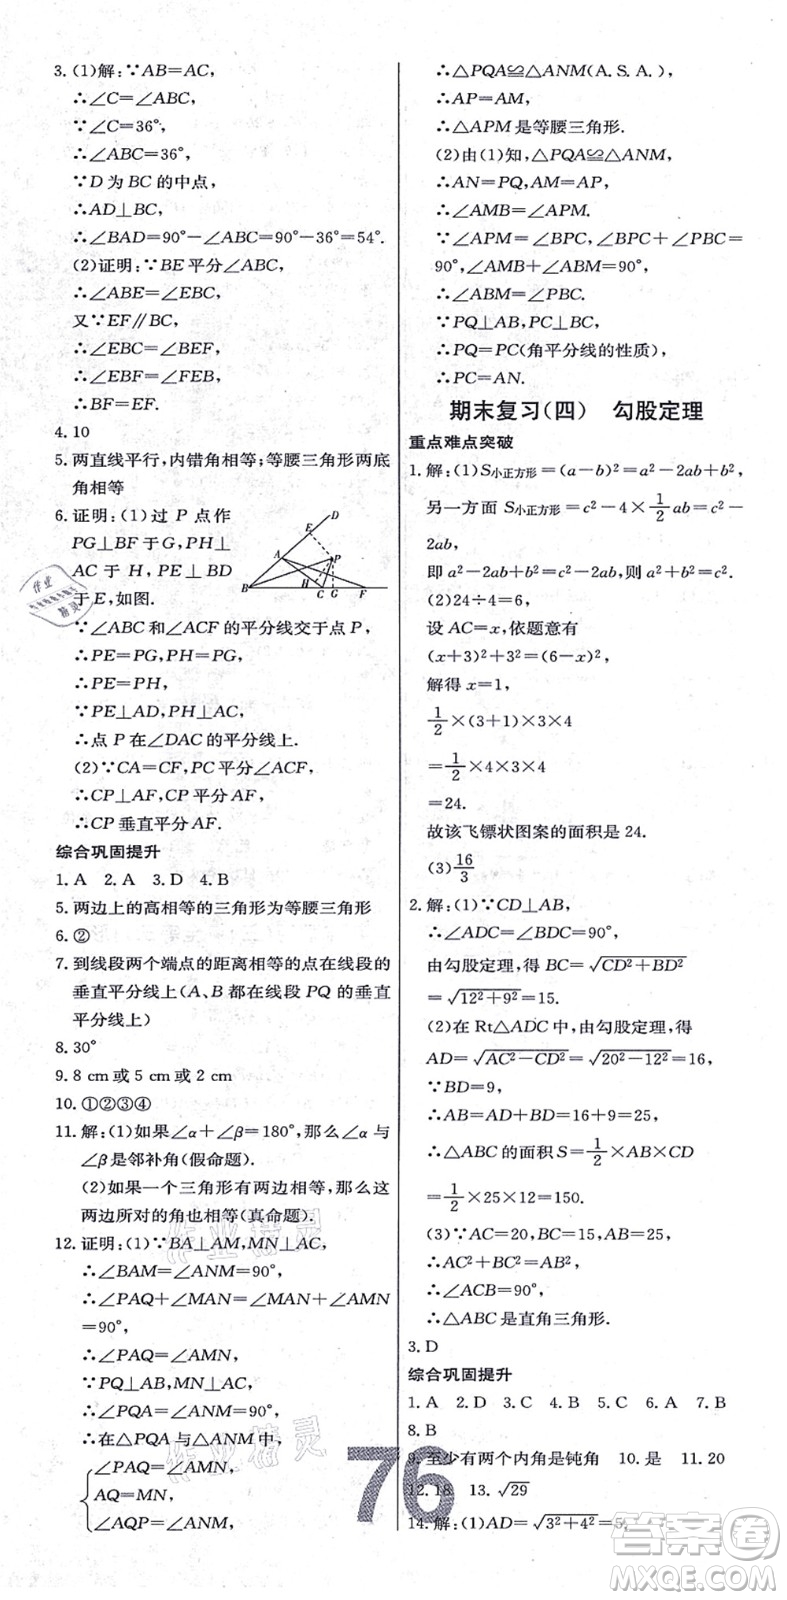 3. (1)解:∵AB=AC,
∴∠C=∠ABC,
∵∠C=36°,
∴∠ABC=36°,
∵D 为 BC 的中点,
∴AD⊥BC,
∴∠BAD=90°-∠ABC=90°-36°=54°.
(2)证明:∵BE平分∠ABC,
∴∠ABE=∠EBC,
又∵EF∥BC,
∴∠EBC=∠BEF,
∴∠EBF=∠FEB,
∴BF=EF.
4. 10
5. 两直线平行,内错角相等;等腰三角形两底
角相等
6. 证明:(1)过 P 点作
PG⊥BF于G,PH⊥
AC 于 H, PE⊥BD
于E,如图.
D
E
A
P
B
H
C
G
F
∵∠ABC 和∠ACF 的平分线交于点 P,
∴PE=PG,PH=PG,
∴PE=PH,
∵PE⊥AD,PH⊥AC,
∴点 P在∠DAC的平分线上.
(2)∵CA=CF,PC平分∠ACF,
∴CP⊥AF,CP平分 AF,
∴CP垂直平分AF.
综合巩固提升
1. A 2. A 3. D 4. B
5. 两边上的高相等的三角形为等腰三角形
6. ②
7. 到线段两个端点的距离相等的点在线段的
垂直平分线上(A、B 都在线段 PQ 的垂直
平分线上)
8. 30°
9. 8 cm 或 5 cm 或 2 cm
10. ①②③④
11. 解:(1)如果∠α+∠β=180°,那么∠α 与
∠β是邻补角(假命题).
(2)如果一个三角形有两边相等,那么这
两边所对的角也相等(真命题).
12. 证明:(1)∵BA⊥AM,MN⊥AC,
∴∠BAM=∠ANM=90°,
∴∠PAQ+∠MAN=∠MAN+∠AMN
=90°,
∴∠PAQ=∠AMN,
∵PQ⊥AB,MN⊥AC,
∴∠PQA=∠ANM=90°,
∴在△PQA与△ANM中,
∠PAQ=∠AMN,
AQ=MN,
∠AQP=∠ANM,
∴△PQA≌△ANM(A.S.A.),
∴AP=AM,
∴△APM 是等腰三角形.
(2)由(1)知,△PQA≌△ANM,
∴AN=PQ,AM=AP,
∴∠AMB=∠APM.
∵∠APM=∠BPC,∠BPC+∠PBC=
90°,∠AMB+∠ABM=90°,
∴∠ABM=∠PBC.
∵PQ⊥AB,PC⊥BC,
∴PQ=PC(角平分线的性质),
∴PC=AN.
期末复习(四) 勾股定理
重点难点突破
1. 解:(1)S小正方形=(a-b)²=a²-2ab+b²,
另一方面 S小正方形=c²-4×1/2 ab=c²-
2ab,
即 a²-2ab+b²=c²-2ab,则 a²+b²=c².
(2)24÷4=6,
设 AC=x,依题意有
(x+3)²+3²=(6-x)²,
解得 x=1,
1/2×(3+1)×3×4
=1/2×4×3×4
=24.
故该飞镖状图案的面积是 24.
(3)16/3
2. 解:(1)∵CD⊥AB,
∴∠ADC=∠BDC=90°,
由勾股定理,得 BC=√(CD²+BD²)
=√(12²+9²)=15.
(2)在 Rt△ADC 中,由勾股定理,得
AD=√(AC²-CD²)=√(20²-12²)=16,
∵BD=9,
∴AB=AD+BD=16+9=25,
∴△ABC 的面积 S=1/2×AB×CD
=1/2×25×12=150.
(3)∵AC=20,BC=15,AB=25,
∴AC²+BC²=AB²,
∴∠ACB=90°,
∴△ABC是直角三角形.
3. D
综合巩固提升
1. A 2. D 3. C 4. C 5. B 6. A 7. B
8. B
9. 至少有两个内角是钝角 10. 是 11. 20
12. 18 13. √29
14. 解:(1)AD=√(3²+4²)=5,
76
作业精灵
作业精灵
作业
精灵
答案圈
MXQE.COM